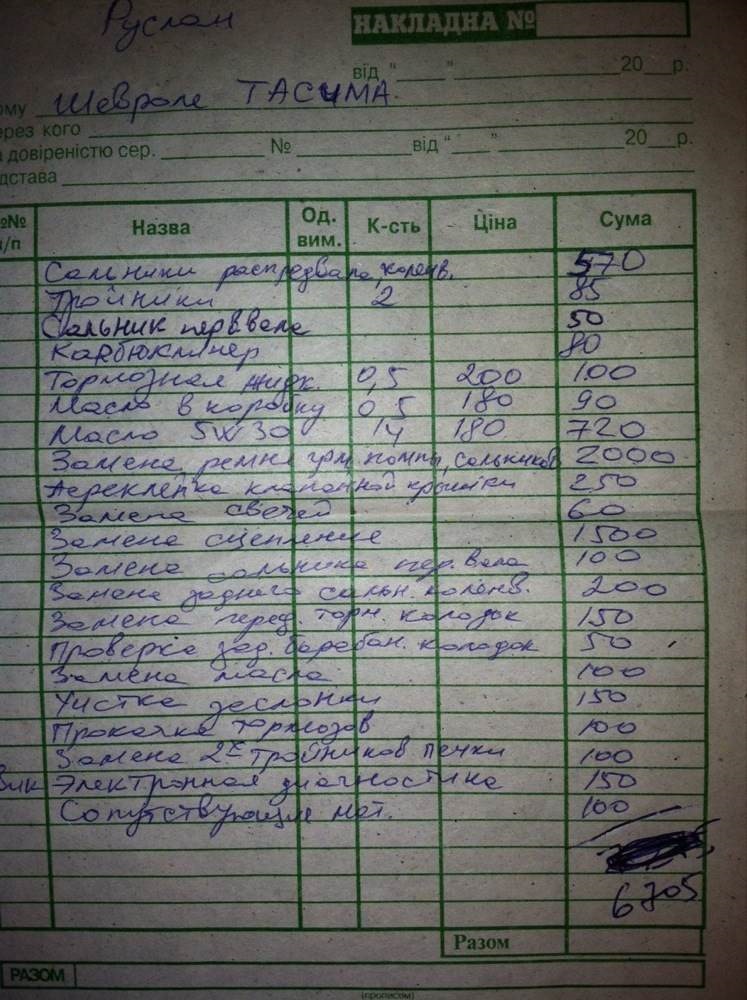 Руслан
НАКЛАДНА №
від "____" ____ 20__р.
ому Шевроле ТАСИМА.
ерез кого
а довіреністю сер. ____ № ____ від "____" ____ 20__р.
дстава
№№ п/п Назва Од. вим. К-сть Ціна Сума
Сальники распредвала, коленв. 570
Тройники 2 85
Сальник перв.вала 50
Карбюклинер 80
Тормозная жидк. 0,5 200 100
Масло в коробку 0,5 180 90
Масло 5W30 4 180 720
Замена ремня грм, помпы, сальников 2000
Переклейка клапанной крышки 250
Замена свечей 60
Замена сцепления 1500
Замена сальника пер. вала 100
Замена заднего сальн. коленв. 200
Замена перед. торм. колодок 150
Проверка зад. барабан. колодок 50
Замена масла 100
Чистка заслонки 150
Прокачка тормозов 100
Замена 2х тройников печки 100
вик Электронная диагностика 150
Сопутствующие мат. 100
6705
Разом
РАЗОМ
(прописом)